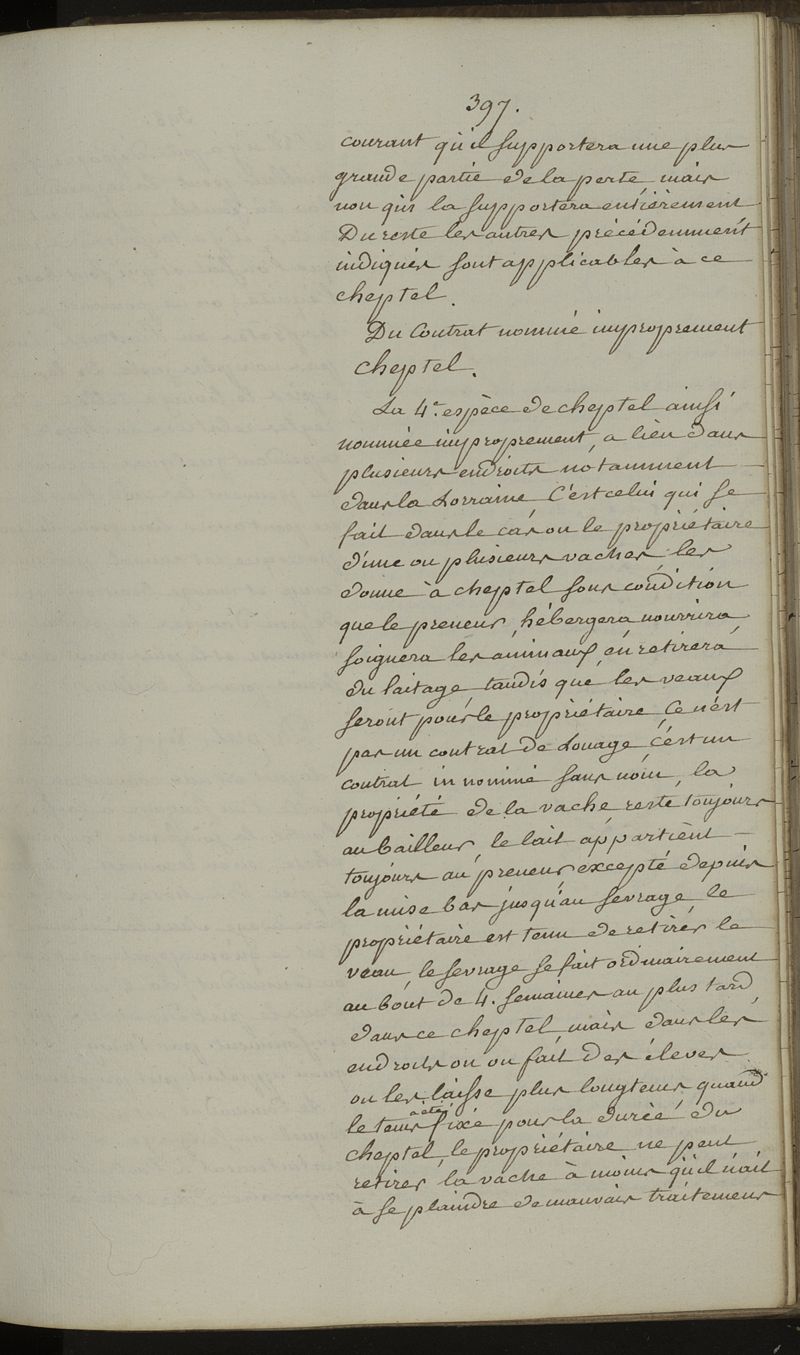 397.
courant qu'il supportera une plus
grande partie de la perte mais
non qu'il la supportera entièrement
Du reste les autres précédemment
indiqués sont applicables à ce
cheptel.
Du Contrat nommé improprement
cheptel.
La 4.e espèce de cheptel ainsi
nommée improprement, a lieu dans
plusieurs endroits notamment
dans la Lorraine, C'est celui qui se
fait dans le cas ou le propriétaire
d'une ou plusieurs vaches, les
donne à cheptel sous condition
que le preneur, hébergera nourrira
soignera les animaux, en retirera
du laitage, tandis que les veaux
seront pour le propriétaire, Ce n'est
pas un contrat de Louage, c'est un
contrat innommé sans nom, la
propriété de la vache reste toujours
au bailleur, le lait appartient
toujours au preneur excepté depuis
la mise bas jusqu'au sevrage, le
propriétaire est tenu de retirer le
veau, le sevrage se fait ordinairement
au bout de 4. semaines au plus tard,
dans ce cheptel, mais dans les
endroits ou on fait des éleves
on les laisse plus longtems, quand
le tems a été fixé pour la durée du
cheptel, le propriétaire ne peut
retirer la vache à moins qu'il n'ait
à se plaindre de mauvais traitemens